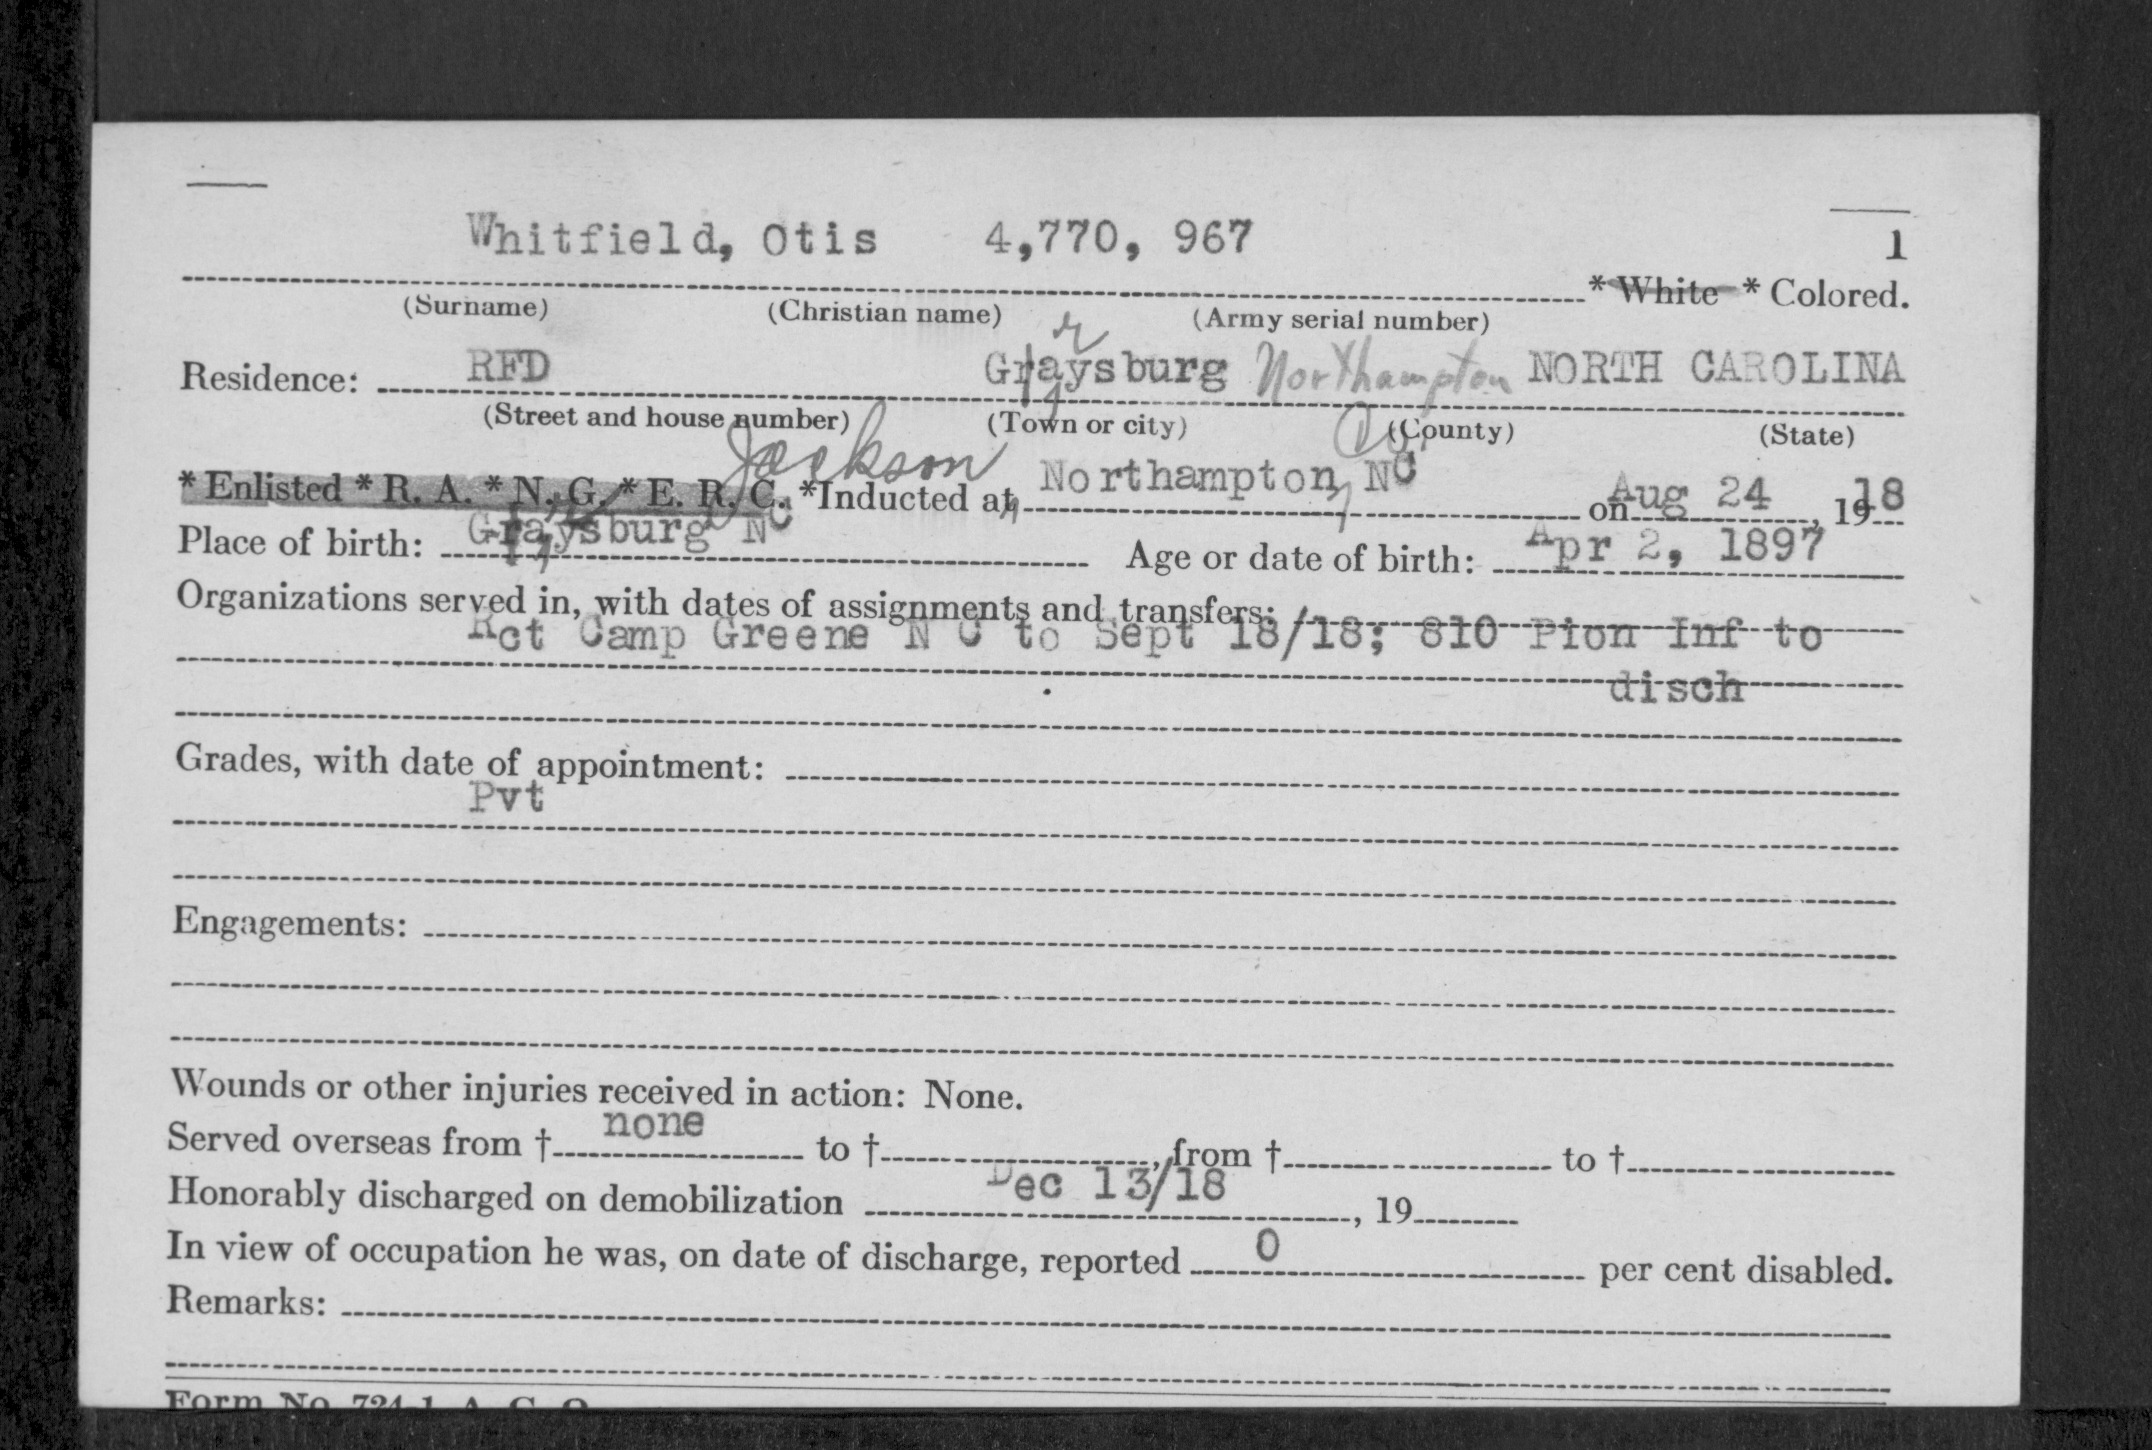 Whitfield, Otis 4,770, 967 1
* White * Colored.
(Surname) (Christian name) (Army serial number)
Residence: RFD Graysburg r Northampton NORTH CAROLINA
(Street and house number) (Town or city) (County) (State)
Jackson Co.
* Enlisted * R. A. * N. G. * E. R. C. *Inducted at Northampton, NC on Aug 24, 1918
Place of birth: Graysburg NC Age or date of birth: Apr 2, 1897
Organizations served in, with dates of assignments and transfers:
Rct Camp Greene N C to Sept 18/18; 810 Pion Inf to
disch
Grades, with date of appointment:
Pvt
Engagements:
Wounds or other injuries received in action: None.
Served overseas from † none to †, from † to †
Honorably discharged on demobilization Dec 13/18, 19
In view of occupation he was, on date of discharge, reported 0 per cent disabled.
Remarks:
Form No. 724-1, A. G. O.